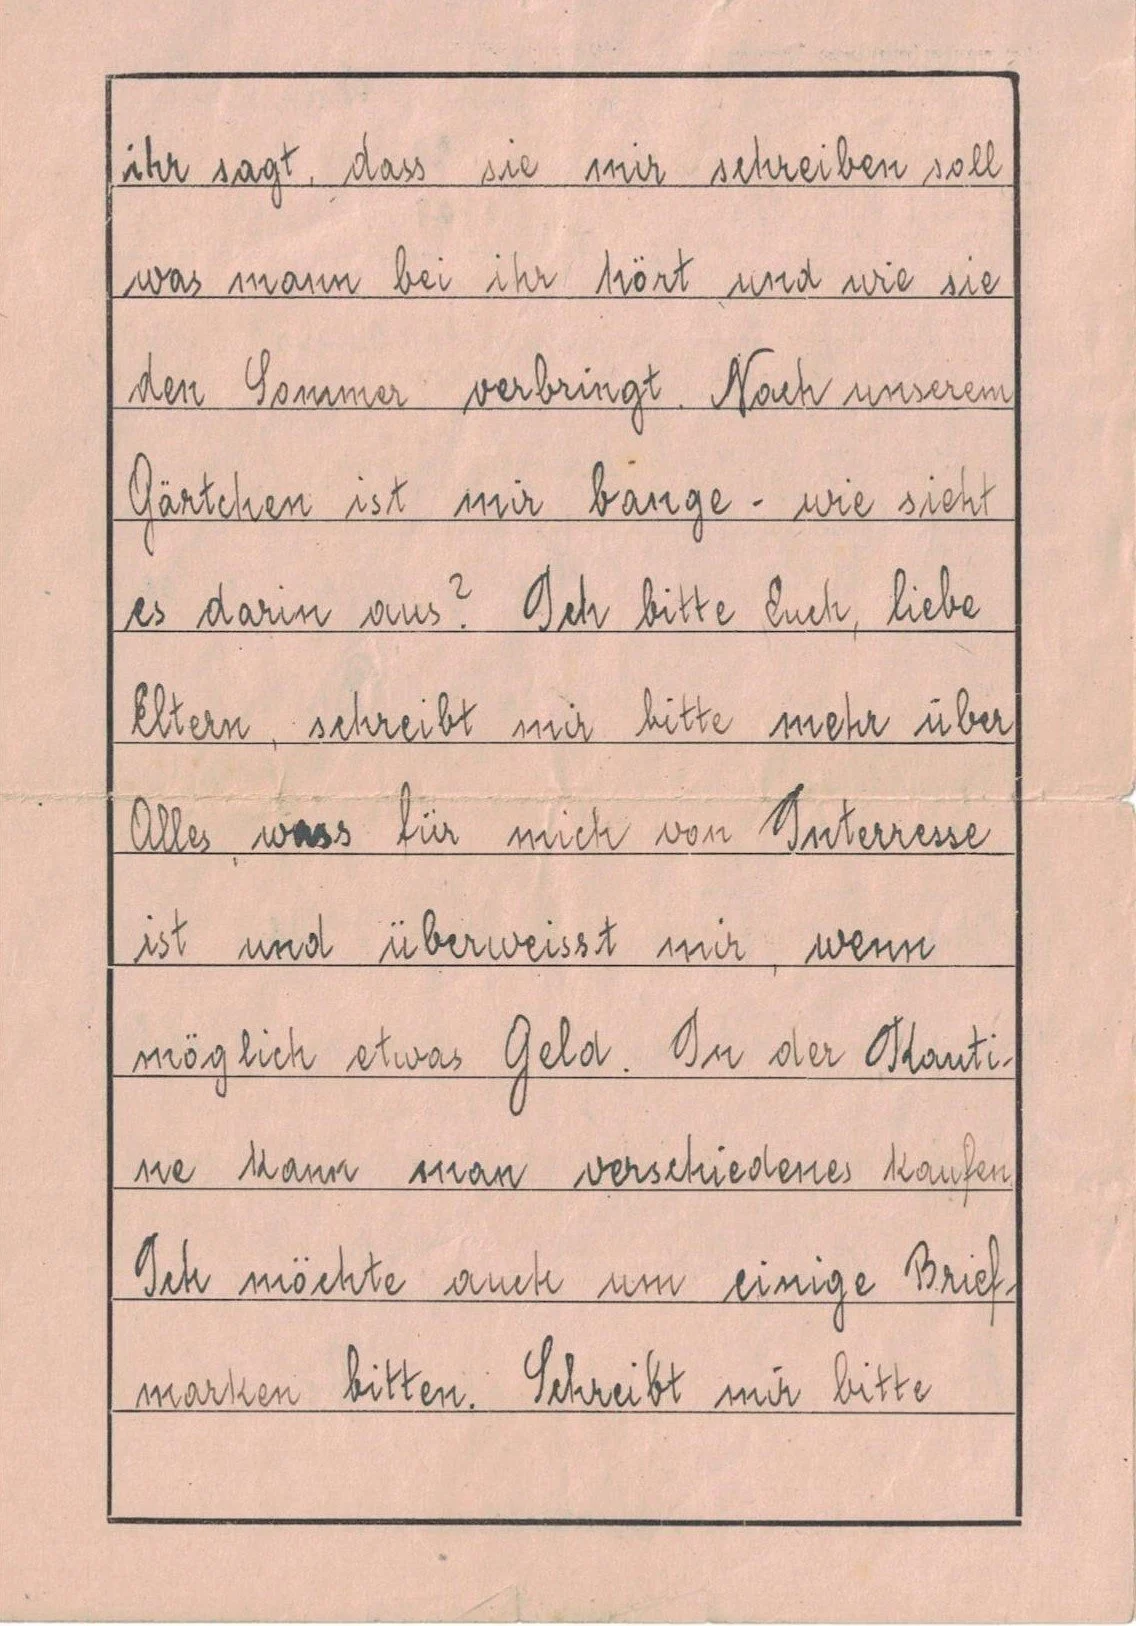 ihr sagt, dass sie mir schreiben soll
was mann bei ihr hört und wie sie
den Sommer verbringt. Nach unserem
Gärtchen ist mir bange - wie sieht
es darin aus? Ich bitte Euch, liebe
Eltern, schreibt mir bitte mehr über
Alles, wass für mich von Interresse
ist und überweisst mir, wenn
möglich etwas Geld. In der Kanti-
ne kann man verschiedenes kaufen
Ich möchte auch um einige Brief-
marken bitten. Schreibt mir bitte